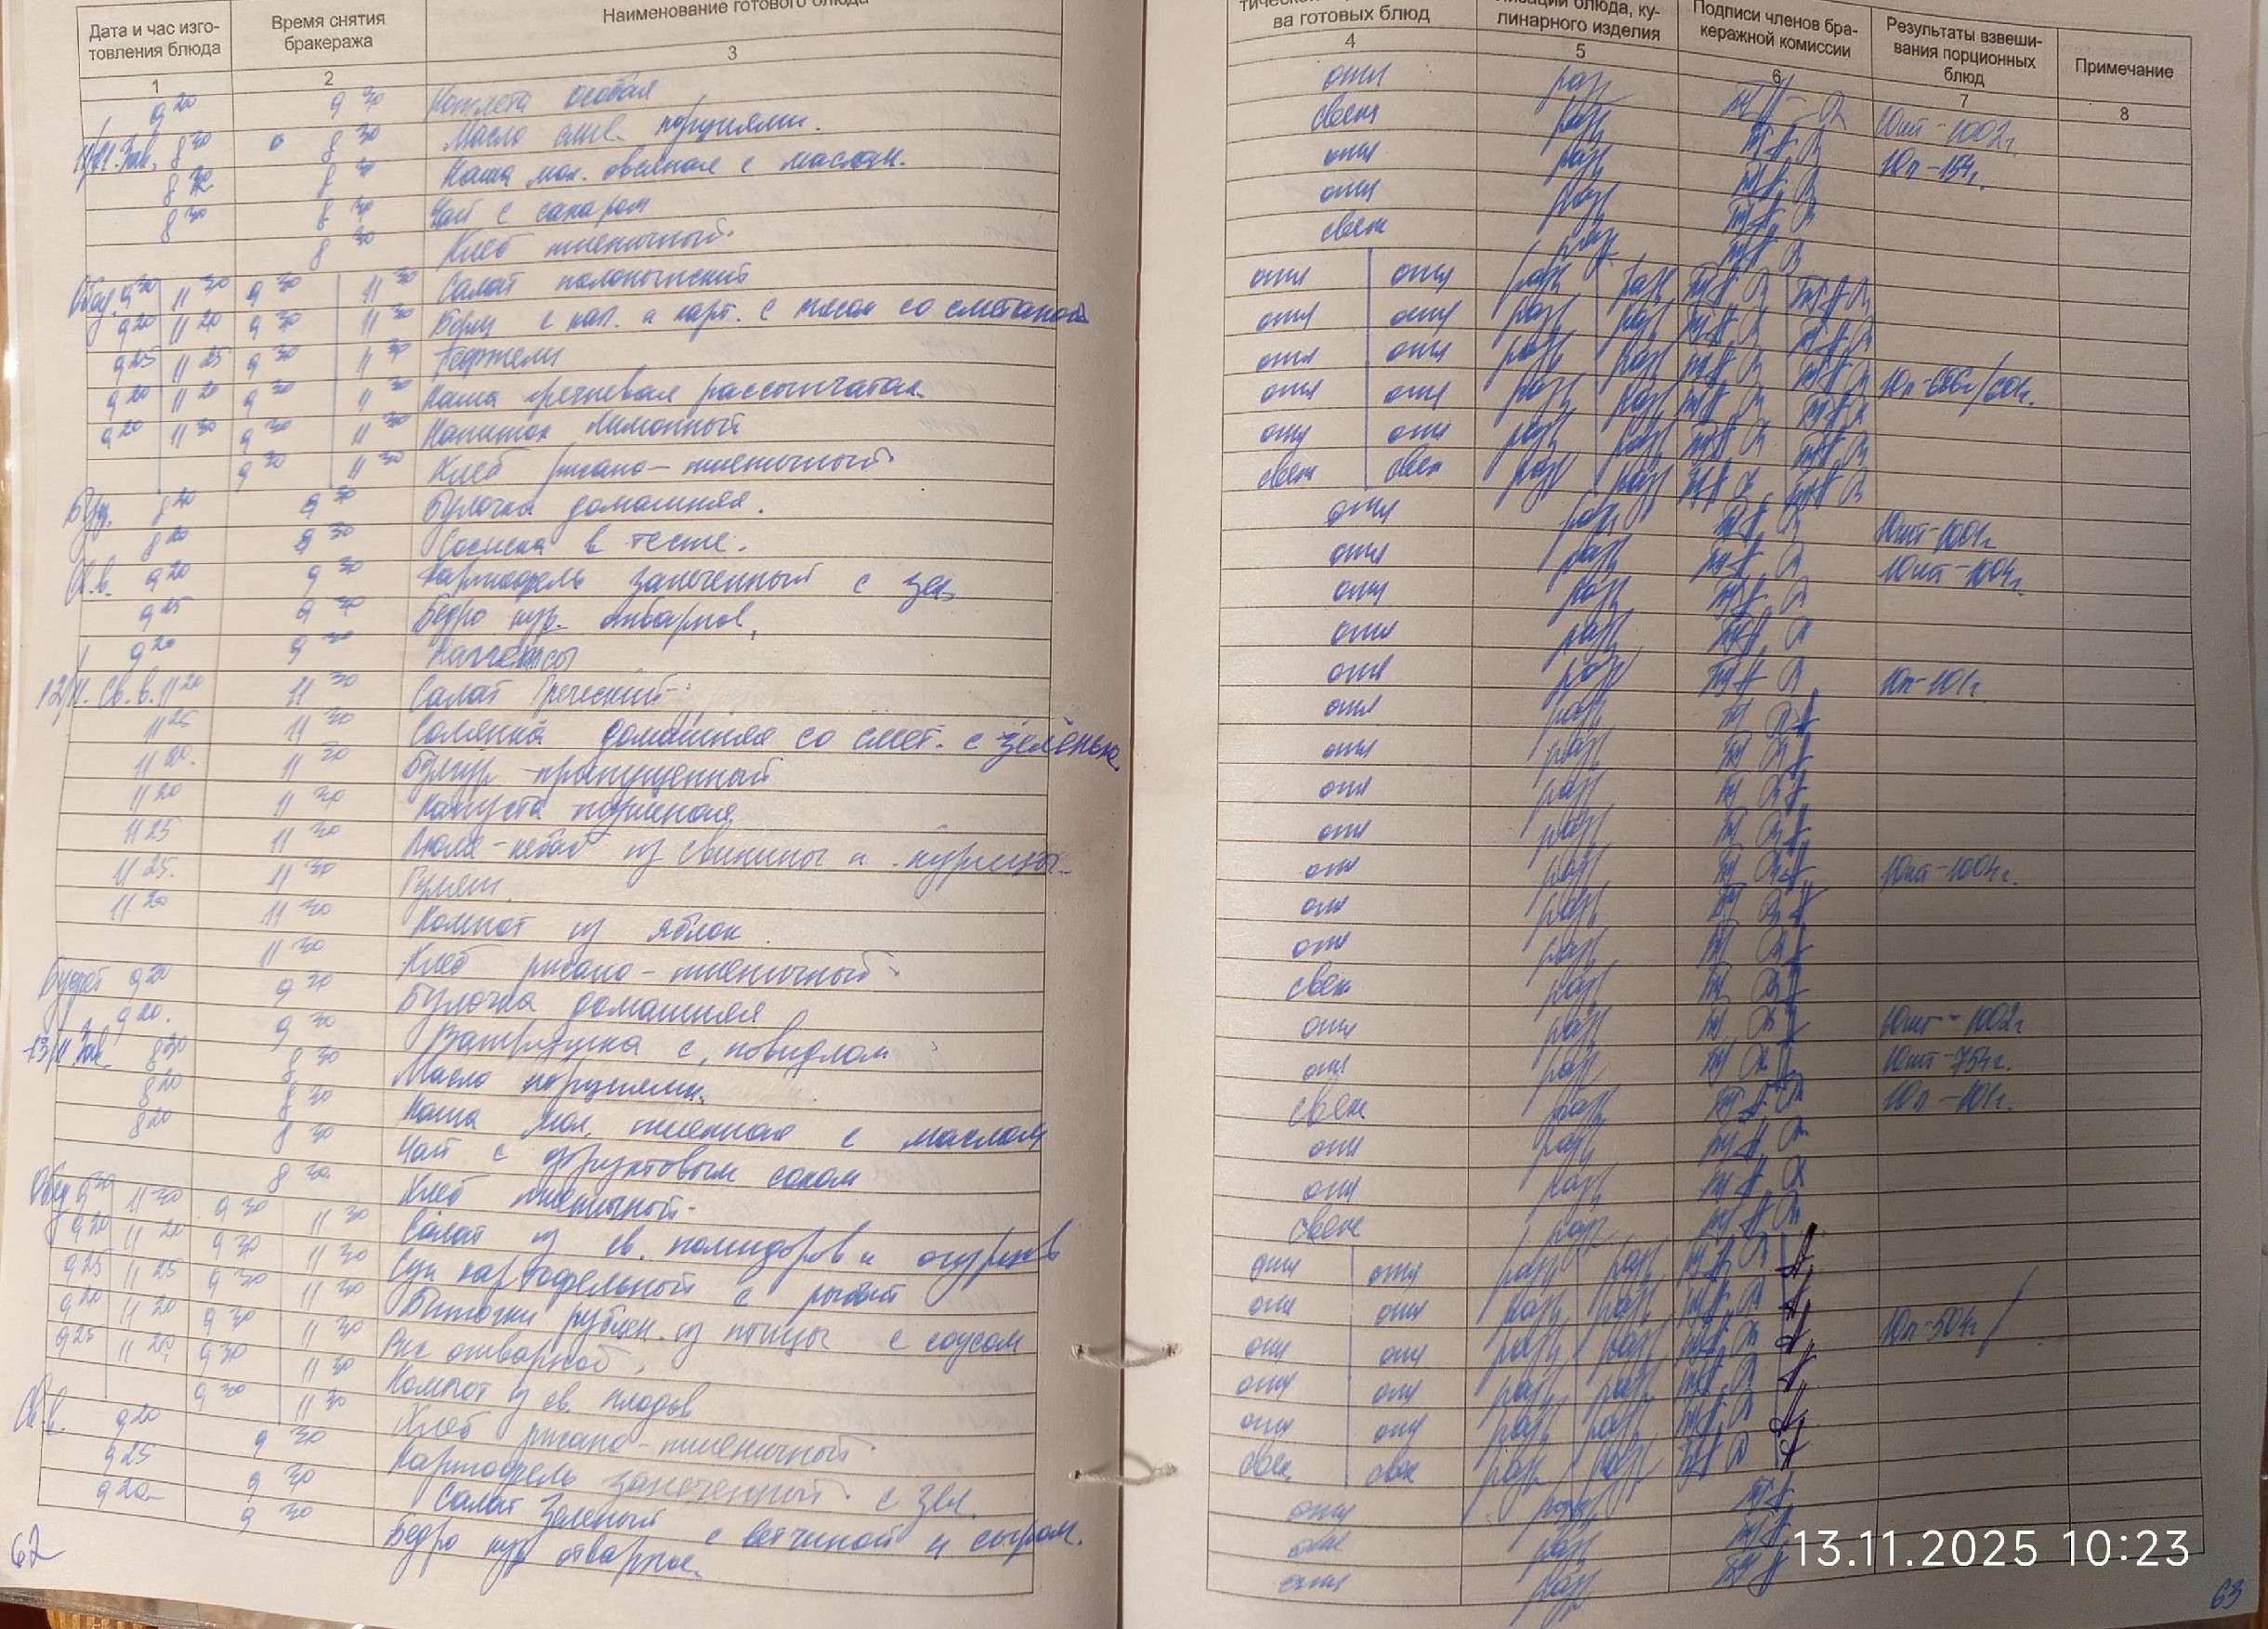 Дата и час изго-
товления блюда
Время снятия
бракеража
Наименование готового блюда
1 2 3
9 20 9 30 Котлета особая
11/11. Зав. 8 30 8 30 Масло слив. порциями.
8 30 8 30 Каша мол. овсяная с маслом.
8 30 8 30 Чай с сахаром
8 30 Хлеб пшеничный.
Обед 9 30 11 30 9 30 11 30 Салат
9 20 11 20 9 30 11 30 Борщ с кап. и карт. с мясом со сметаной
9 25 11 25 9 30 11 30 Тефтели
9 20 11 20 9 30 11 30 Каша гречневая рассыпчатая
9 20 11 30 9 30 11 30 Напиток лимонный
9 30 11 30 Хлеб ржано-пшеничный
8 20 9 30 Булочка домашняя.
8 20 9 30 Сосиска в тесте.
Св.в. 9 20 9 30 Картофель запеченный с зел.
9 25 9 30 Бедро кур. отварное
9 20 9 30 Наггетсы
12/11. Св.в. 11 20 11 30 Салат Греческий
11 25 11 30 Солянка домашняя со смет. с зеленью
11 20. 11 30 Булгур припущенный
11 20 11 30 Капуста тушеная
11 25 11 30 Люля-кебаб из свинины и курицы
11 25. 11 30 Гуляш
11 20 11 30 Компот из яблок
11 30 Хлеб ржано-пшеничный
Буфет 9 20 9 30 Булочка домашняя
9 20. 9 30 Ватрушка с повидлом
13/11 Зав. 8 30 8 30 Масло порциями.
8 20 8 30 Каша мол. пшенная с маслом
8 20 8 30 Чай с фруктовым соком
8 30 Хлеб пшеничный.
Обед 9 30 11 30 9 30 11 30 Салат из св. помидоров и огурцов
9 20 11 20 9 30 11 30 Суп картофельный с рыбой
9 25 11 25 9 30 11 30 Биточки рублен. из птицы с соусом
9 20 11 20 9 30 11 30 Рис отварной
9 25 11 20 9 30 11 30 Компот из св. плодов
9 30 11 30 Хлеб ржано-пшеничный
Св.в. 9 20 9 30 Картофель запеченный с зел.
9 25 9 30 Салат Зеленый с ветчиной и сыром.
9 20 9 30 Бедро кур отварное
62
ва готовых блюд
лизации блюда, ку-
линарного изделия
Подписи членов бра-
керажной комиссии
Результаты взвеши-
вания порционных
блюд
Примечание
4 5 6 7 8
отл раз 10шт-1002г
свеж раз 10п-154г.
отл раз
отл раз
свеж раз
отл отл раз раз
отл отл раз раз
отл отл раз раз
отл отл раз раз
отл отл раз раз
свеж свеж раз раз
отл раз 10шт-1001г
отл раз 10шт-1004г.
отл раз
отл раз
отл раз 10п-101г
отл раз
отл раз
отл раз
отл раз
отл раз 10шт-1004г.
отл раз
отл раз
свеж раз
отл раз 10шт-1002г
отл раз 10шт-754г.
свеж раз 10п-101г.
отл раз
отл раз
свеж раз
отл отл раз раз
отл отл раз раз
отл отл раз раз
отл отл раз раз
отл отл раз раз
свеж свеж раз раз
отл раз
отл раз
отл раз
13.11.2025 10:23
63